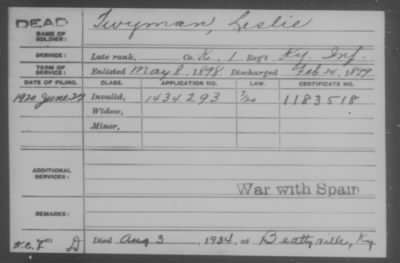 DEAD
NAME OF SOLDIER: Twyman, Leslie
SERVICE: Late rank, Co. K, 1 Reg't Ky Inf.
TERM OF SERVICE: Enlisted May 8, 1898 Discharged Feb 24, 1899
DATE OF FILING. CLASS. APPLICATION NO. LAW. CERTIFICATE NO.
1920 June 25 Invalid, 1434293 1183518
Widow,
Minor,
ADDITIONAL SERVICES:
War with Spain
REMARKS:
D Died Aug 3, 1934, at Beattyville, Ky.